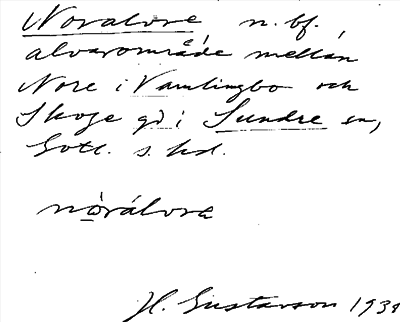 Noralvre n. bf.,
alvarområde mellan
Nore i Vamlingbo och
Skoge gd i Sundre sn,
Gotl. s. hd.
nòrálvra
H. Gustavson 1938